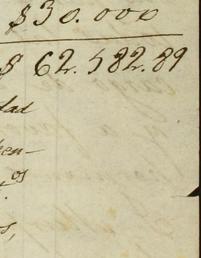 $30.000
$ 62.582.89
dad
en-
os
s,